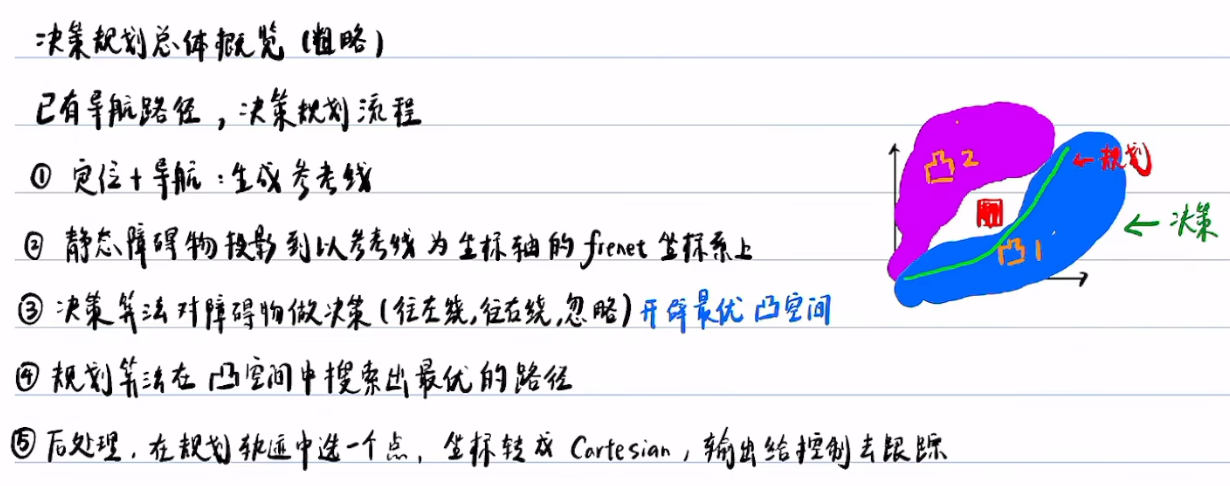 决策规划总体概览(粗略)
已有导航路径，决策规划流程
① 定位+导航：生成参考线
② 静态障碍物投影到以参考线为坐标轴的frenet坐标系上
③ 决策算法对障碍物做决策(往左绕,往右绕,忽略)开辟最优凸空间
④ 规划算法在凸空间中搜索出最优的路径
⑤ 后处理，在规划轨迹中选一个点，坐标转成 Cartesian，输出给控制去跟踪
凸2
←规划
凸1
←决策